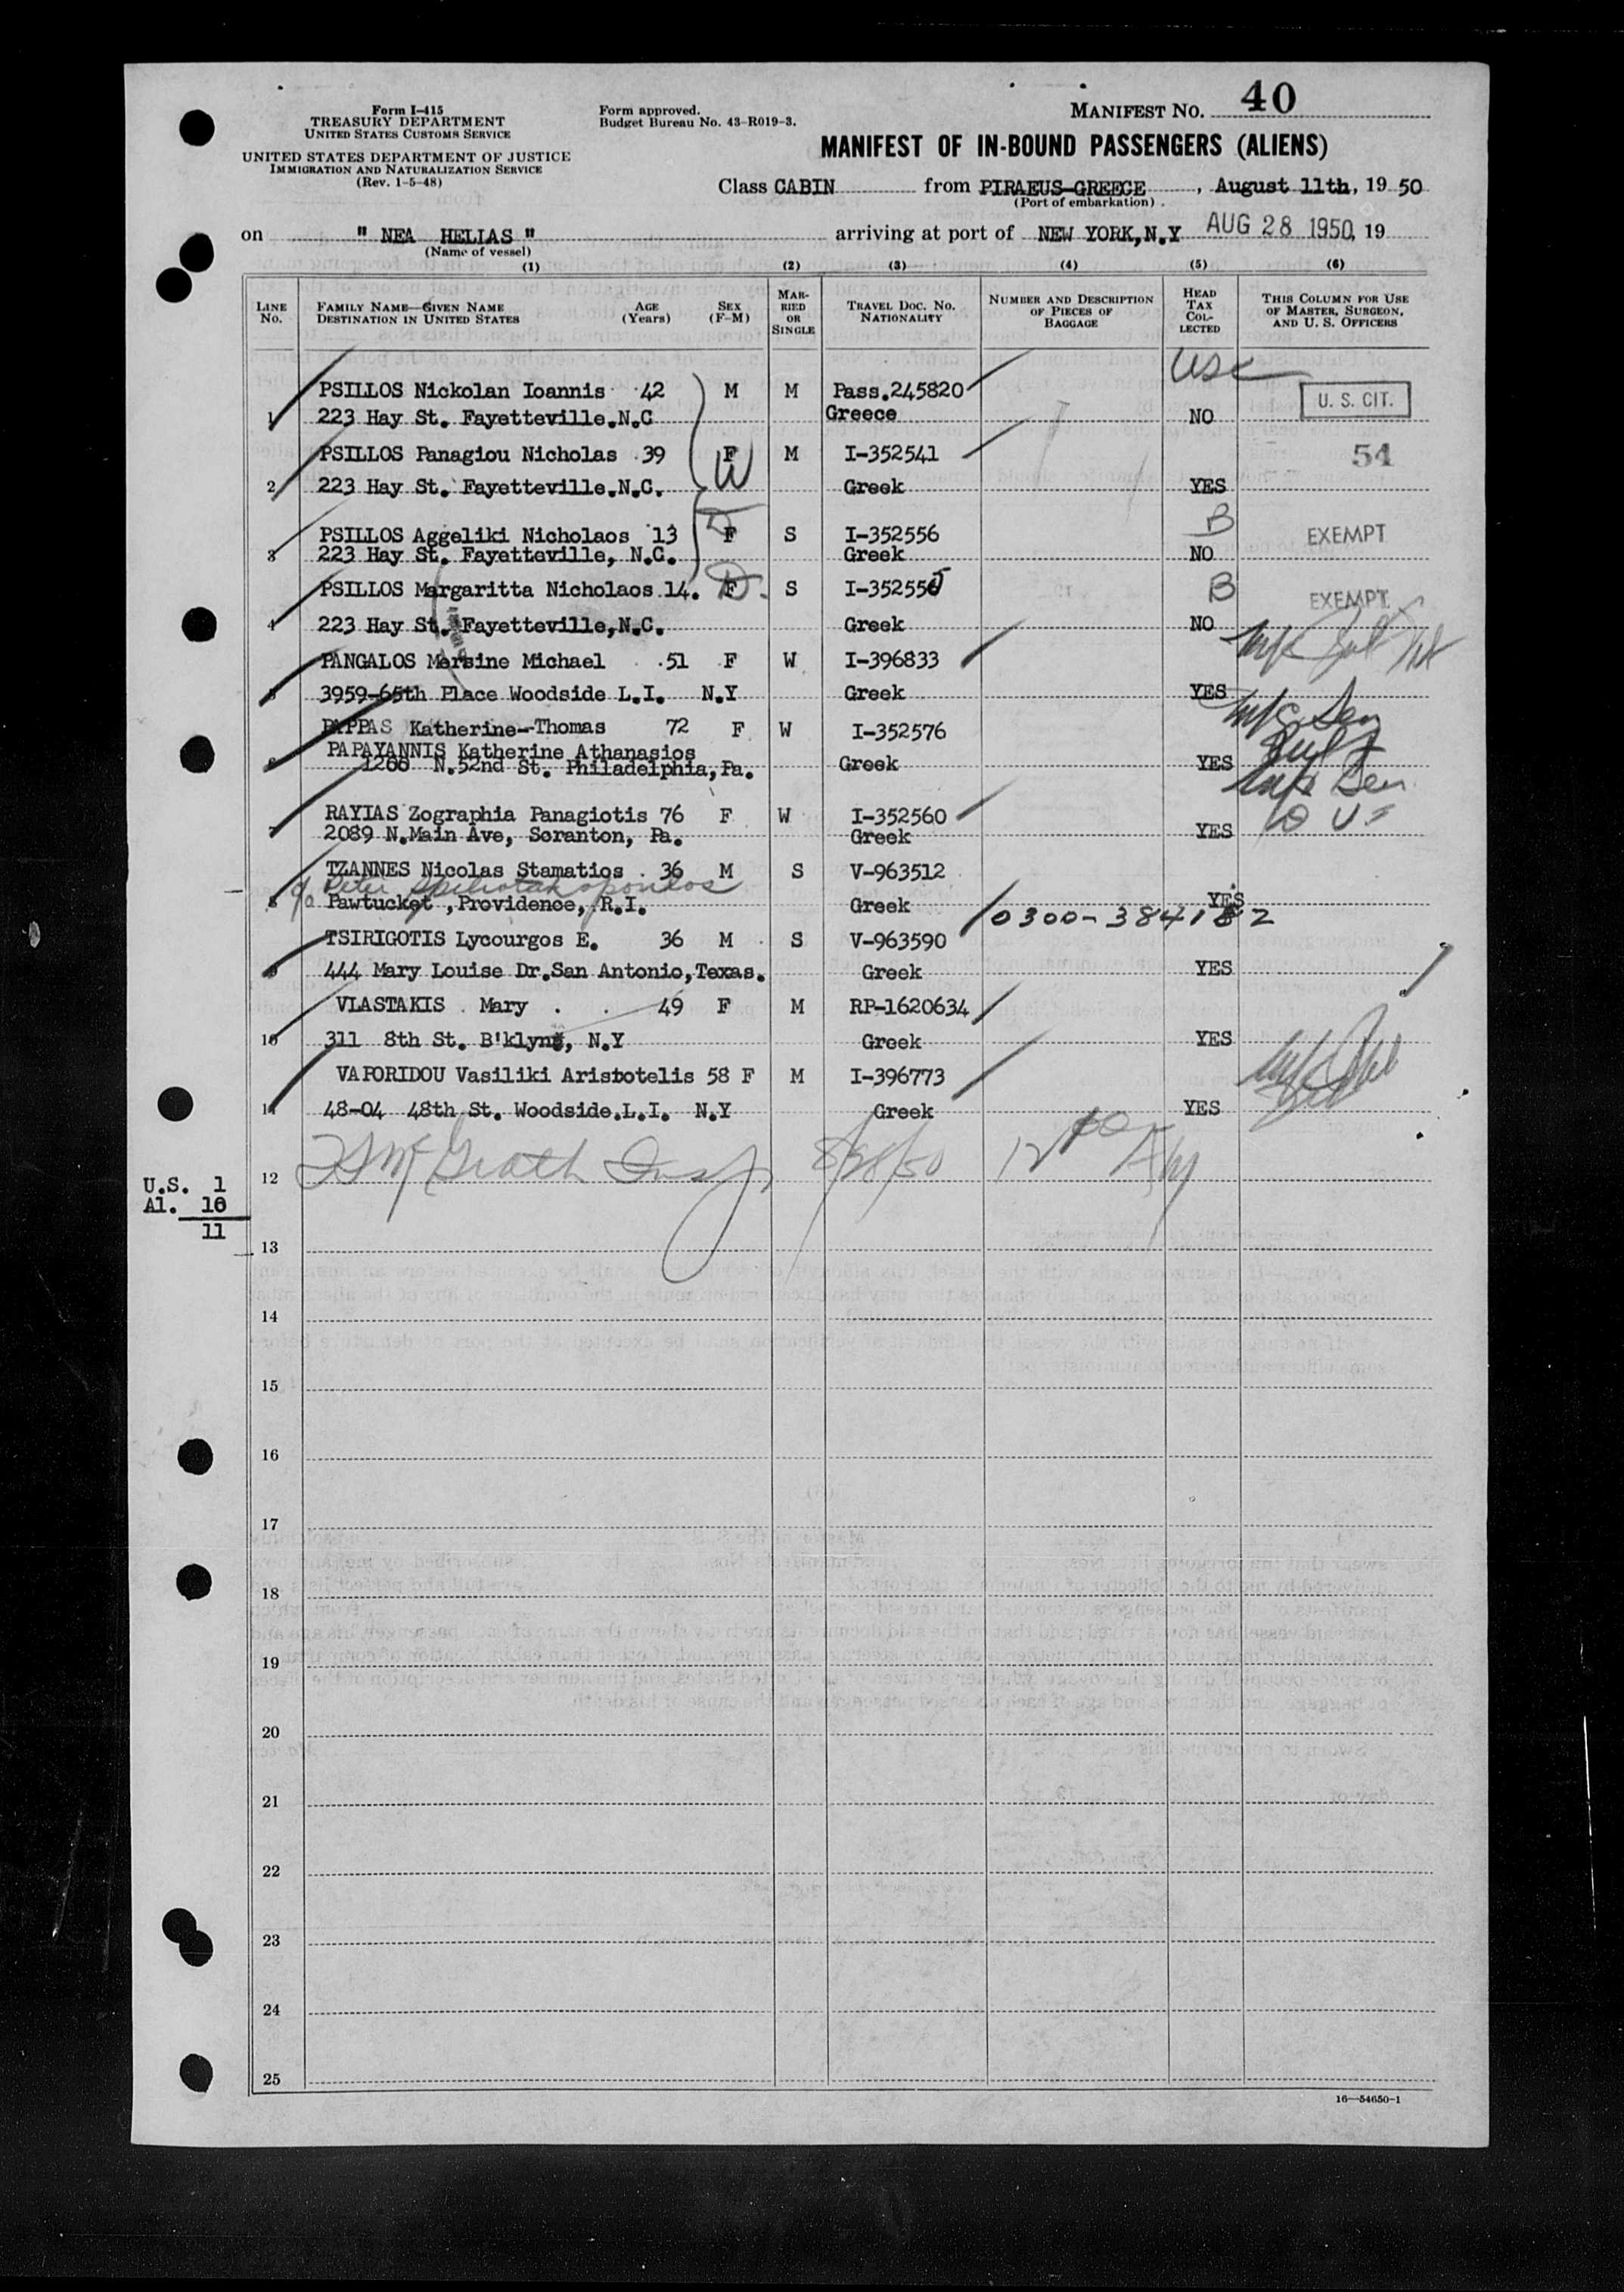 Form I-415
TREASURY DEPARTMENT
UNITED STATES CUSTOMS SERVICE
UNITED STATES DEPARTMENT OF JUSTICE
IMMIGRATION AND NATURALIZATION SERVICE
(Rev. 1-5-48)
Form approved.
Budget Bureau No. 43-R019-3.
MANIFEST NO. 40
MANIFEST OF IN-BOUND PASSENGERS (ALIENS)
Class CABIN from PIRAEUS-GREECE, August 11th, 19 50
(Port of embarkation)
on " NEA HELIAS " arriving at port of NEW YORK, N.Y AUG 28 1950, 19
(Name of vessel)
(1) (2) (3) (4) (5) (6)
LINE No. FAMILY NAME—GIVEN NAME DESTINATION IN UNITED STATES AGE (Years) SEX (F-M) MARRIED OR SINGLE TRAVEL DOC. NO. NATIONALITY NUMBER AND DESCRIPTION OF PIECES OF BAGGAGE HEAD TAX COLLECTED THIS COLUMN FOR USE OF MASTER, SURGEON, AND U. S. OFFICERS
USC
PSILLOS Nickolan Ioannis 42 M M Pass.245820 U. S. CIT.
1 223 Hay St. Fayetteville.N.C Greece NO
PSILLOS Panagiou Nicholas 39 F W M I-352541 54
2 223 Hay St. Fayetteville.N.C. Greek YES
PSILLOS Aggeliki Nicholaos 13 D F S I-352556 B EXEMPT
3 223 Hay St. Fayetteville, N.C. Greek NO
PSILLOS Margaritta Nicholaos 14. F D. S I-352555 B EXEMPT
4 223 Hay St. Fayetteville,N.C. Greek NO
PANGALOS Mersine Michael 51 F W I-396833
5 3959-65th Place Woodside L.I. N.Y Greek YES
PAPPAS Katherine-Thomas 72 F W I-352576
PAPAYANNIS Katherine Athanasios
6 1266 N.52nd St. Philadelphia, Pa. Greek YES
RAYIAS Zographia Panagiotis 76 F W I-352560
7 2089 N.Main Ave, Scranton, Pa. Greek YES
TZANNES Nicolas Stamatios 36 M S V-963512
c/o Peter Spiliotakopoulos
8 Pawtucket, Providence, R.I. Greek YES
0300-384182
TSIRIGOTIS Lycourgos E. 36 M S V-963590
9 444 Mary Louise Dr.San Antonio,Texas. Greek YES
VLASTAKIS Mary 49 F M RP-1620634
10 311 8th St. B'klyng, N.Y Greek YES
VAPORIDOU Vasiliki Aristotelis 58 F M I-396773
11 48-04 48th St. Woodside.L.I. N.Y Greek YES
12 McGrath Insp 8/28/50
U.S. 1
Al. 10
11
13
14
15
16
17
18
19
20
21
22
23
24
25
16—54650-1